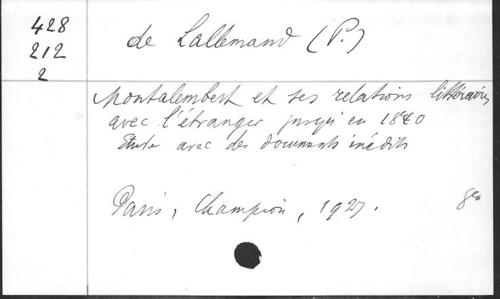 428
212
2
de Lallemand (P.)
Montalembert et ses relations littéraires
avec l'étranger jusqu'en 1840
Étude avec des documents inédits
Paris, Champion, 1927.
8°